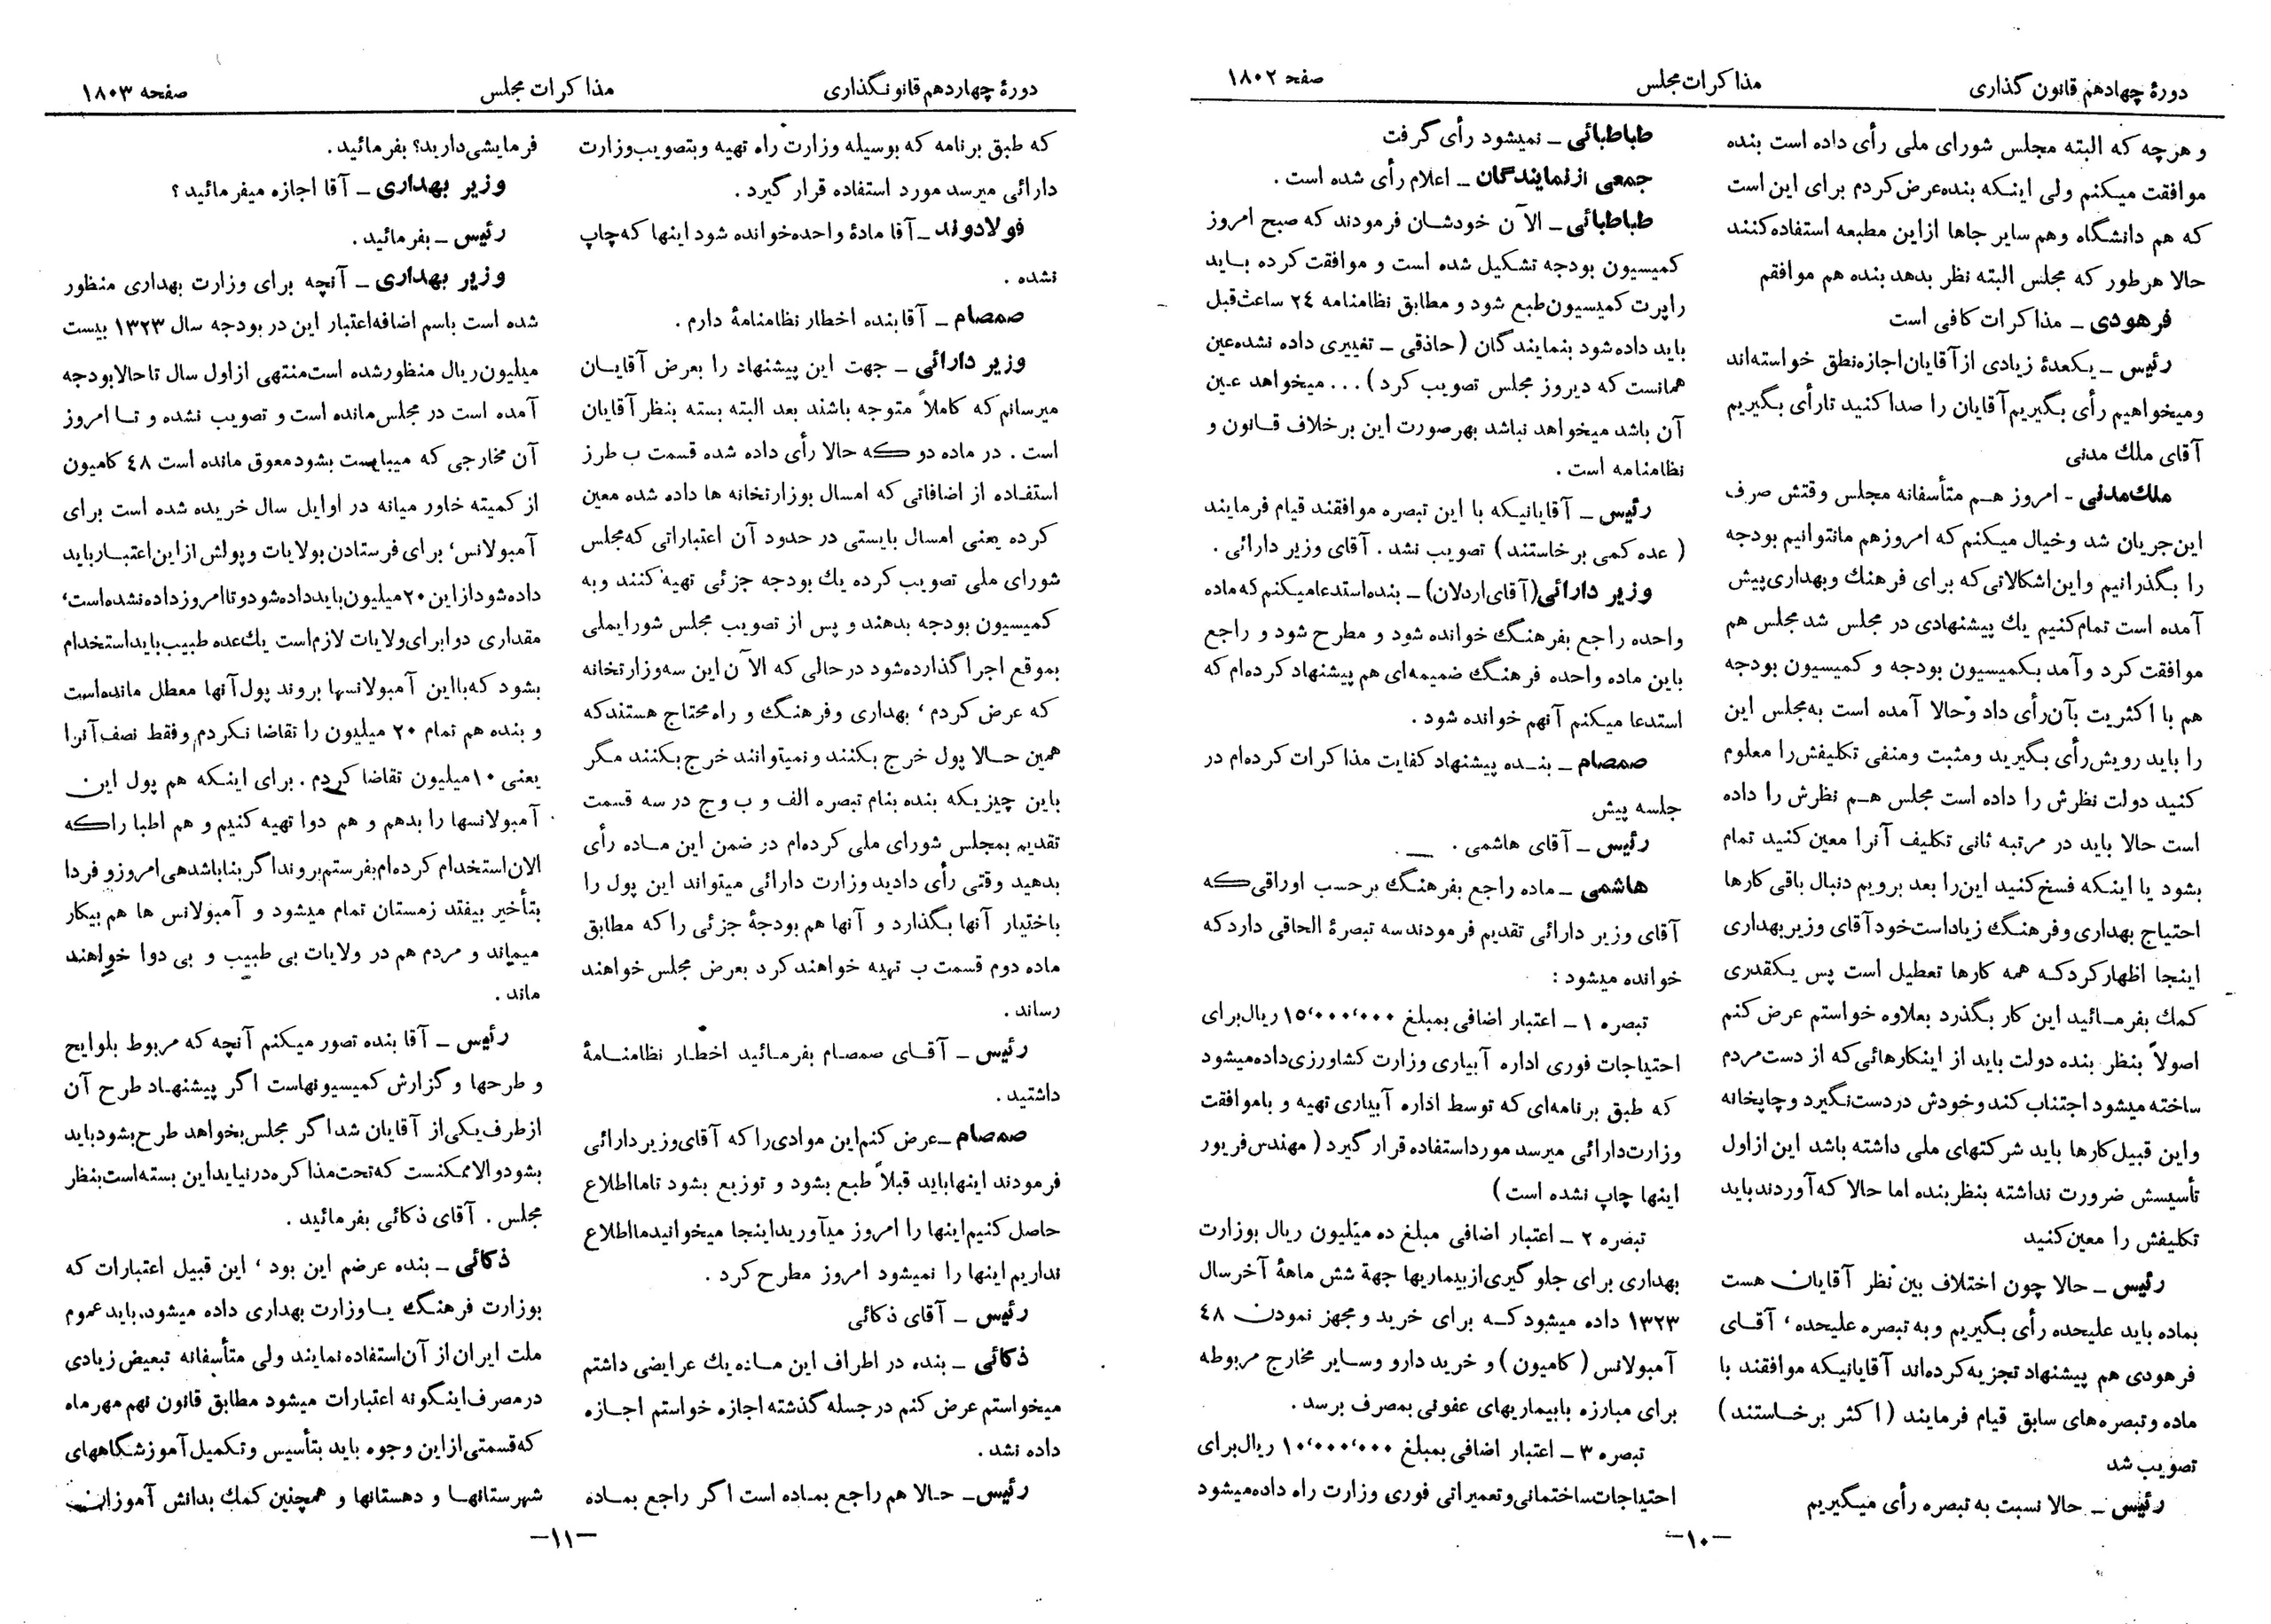 دورهٔ چهادهم قانون گذاری
مذاکرات مجلس
صفحه ۱۸۰۲
و هرچه که البته مجلس شورای ملی رأی داده است بنده
موافقت میکنم ولی اینکه بنده عرض کردم برای این است
که هم دانشگاه وهم سایر جاها ازاین مطبعه استفاده کنند
حالا هرطور که مجلس البته نظر بدهد بنده هم موافقم
فرهودی ـ مذاکرات کافی است
رئیس ـ یکعدهٔ زیادی ازآقایان اجازه نطق خواسته‌اند
ومیخواهیم رأی بگیریم آقایان را صدا کنید تارأی بگیریم
آقای ملک مدنی
ملک مدنی - امروز هم متأسفانه مجلس وقتش صرف
این جریان شد وخیال میکنم که امروزهم مانتوانیم بودجه
را بگذرانیم واین اشکالاتی که برای فرهنگ وبهداری پیش
آمده است تمام کنیم یک پیشنهادی در مجلس شد مجلس هم
موافقت کرد وآمد بکمیسیون بودجه و کمیسیون بودجه
هم با اکثریت بآن رأی داد وحالا آمده است به مجلس این
را باید رویش رأی بگیرید ومثبت ومنفی تکلیفش را معلوم
کنید دولت نظرش را داده است مجلس هم نظرش را داده
است حالا باید در مرتبه ثانی تکلیف آنرا معین کنید تمام
بشود یا اینکه فسخ کنید این را بعد برویم دنبال باقی کارها
احتیاج بهداری وفرهنگ زیاداست خود آقای وزیر بهداری
اینجا اظهار کرد که همه کارها تعطیل است پس یکقدری
کمک بفرمائید این کار بگذرد بعلاوه خواستم عرض کنم
اصولاً بنظر بنده دولت باید از اینکارهائی که از دست مردم
ساخته میشود اجتناب کند وخودش در دست نگیرد وچاپخانه
واین قبیل کارها باید شرکتهای ملی داشته باشد این ازاول
تأسیسش ضرورت نداشته بنظر بنده اما حالا که آوردند باید
تکلیفش را معین کنید
رئیس ـ حالا چون اختلاف بین نظر آقایان هست
بماده باید علیحده رأی بگیریم و به تبصره علیحده، آقای
فرهودی هم پیشنهاد تجزیه کرده‌اند آقایانیکه موافقند با
ماده وتبصره‌های سابق قیام فرمایند (اکثر برخاستند)
تصویب شد
رئیس ـ حالا نسبت به تبصره رأی میگیریم
طباطبائی ـ نمیشود رأی گرفت
جمعی از نمایندگان ـ اعلام رأی شده است .
طباطبائی ـ الآن خودشان فرمودند که صبح امروز
کمیسیون بودجه تشکیل شده است و موافقت کرده باید
راپرت کمیسیون طبع شود و مطابق نظامنامه ۲۴ ساعت قبل
باید داده شود بنمایندگان (حاذقی ـ تغییری داده نشده عین
همانست که دیروز مجلس تصویب کرد) ... میخواهد عین
آن باشد میخواهد نباشد بهرصورت این برخلاف قانون و
نظامنامه است .
رئیس ـ آقایانیکه با این تبصره موافقند قیام فرمایند
(عده کمی برخاستند) تصویب نشد . آقای وزیر دارائی .
وزیر دارائی (آقای اردلان) ـ بنده استدعا میکنم که ماده
واحده راجع بفرهنگ خوانده شود و مطرح شود و راجع
باین ماده واحده فرهنگ ضمیمه‌ای هم پیشنهاد کرده‌ام که
استدعا میکنم آنهم خوانده شود .
صمصام ـ بنده پیشنهاد کفایت مذاکرات کرده‌ام در
جلسه پیش
رئیس ـ آقای هاشمی .
هاشمی ـ ماده راجع بفرهنگ برحسب اوراقی که
آقای وزیر دارائی تقدیم فرمودند سه تبصرهٔ الحاقی دارد که
خوانده میشود :
تبصره ۱ ـ اعتبار اضافی بمبلغ ۱۵٬۰۰۰٬۰۰۰ ریال برای
احتیاجات فوری اداره آبیاری وزارت کشاورزی داده میشود
که طبق برنامه‌ای که توسط اداره آبیاری تهیه و باموافقت
وزارت دارائی میرسد مورد استفاده قرار گیرد (مهندس فریور
اینها چاپ نشده است)
تبصره ۲ ـ اعتبار اضافی مبلغ ده میلیون ریال بوزارت
بهداری برای جلوگیری از بیماریها جهة شش ماههٔ آخر سال
۱۳۲۳ داده میشود که برای خرید و مجهز نمودن ۴۸
آمبولانس (کامیون) و خرید دارو وسایر مخارج مربوطه
برای مبارزه بابیماریهای عفونی بمصرف برسد .
تبصره ۳ ـ اعتبار اضافی بمبلغ ۱۰٬۰۰۰٬۰۰۰ ریال برای
احتیاجات ساختمانی وتعمیراتی فوری وزارت راه داده میشود
ـ۱۰ـ
دورهٔ چهاردهم قانونگذاری
مذاکرات مجلس
صفحه ۱۸۰۳
که طبق برنامه که بوسیله وزارت راه تهیه وبتصویب وزارت
دارائی میرسد مورد استفاده قرار گیرد .
فولادوند ـ آقا مادهٔ واحده خوانده شود اینها که چاپ
نشده .
صمصام ـ آقا بنده اخطار نظامنامهٔ دارم .
وزیر دارائی ـ جهت این پیشنهاد را بعرض آقایان
میرسانم که کاملاً متوجه باشند بعد البته بسته بنظر آقایان
است . در ماده دو که حالا رأی داده شده قسمت ب طرز
استفاده از اضافاتی که امسال بوزارتخانه ها داده شده معین
کرده یعنی امسال بایستی در حدود آن اعتباراتی که مجلس
شورای ملی تصویب کرده یک بودجه جزئی تهیه کنند وبه
کمیسیون بودجه بدهند و پس از تصویب مجلس شورایملی
بموقع اجرا گذارده شود در حالی که الآن این سه وزارتخانه
که عرض کردم، بهداری وفرهنگ و راه محتاج هستند که
همین حالا پول خرج بکنند ونمیتوانند خرج بکنند مگر
باین چیزیکه بنده بنام تبصره الف و ب وج در سه قسمت
تقدیم بمجلس شورای ملی کرده‌ام در ضمن این ماده رأی
بدهید وقتی رأی دادید وزارت دارائی میتواند این پول را
باختیار آنها بگذارد و آنها هم بودجهٔ جزئی را که مطابق
ماده دوم قسمت ب تهیه خواهند کرد بعرض مجلس خواهند
رساند .
رئیس ـ آقای صمصام بفرمائید اخطار نظامنامهٔ
داشتید .
صمصام ـ عرض کنم این موادی را که آقای وزیر دارائی
فرمودند اینها باید قبلاً طبع بشود و توزیع بشود تاما اطلاع
حاصل کنیم اینها را امروز میآورید اینجا میخوانید ما اطلاع
نداریم اینها را نمیشود امروز مطرح کرد .
رئیس ـ آقای ذکائی
ذکائی ـ بنده در اطراف این ماده یک عرایضی داشتم
میخواستم عرض کنم در جلسه گذشته اجازه خواستم اجازه
داده نشد .
رئیس ـ حالا هم راجع بماده است اگر راجع بماده
فرمایشی دارید؟ بفرمائید .
وزیر بهداری ـ آقا اجازه میفرمائید ؟
رئیس ـ بفرمائید .
وزیر بهداری ـ آنچه برای وزارت بهداری منظور
شده است باسم اضافه اعتبار این در بودجه سال ۱۳۲۳ بیست
میلیون ریال منظور شده است منتهی ازاول سال تا حالا بودجه
آمده است در مجلس مانده است و تصویب نشده و تا امروز
آن مخارجی که میبایست بشود معوق مانده است ۴۸ کامیون
از کمیته خاور میانه در اوایل سال خریده شده است برای
آمبولانس، برای فرستادن بولایات و پولش از این اعتبار باید
داده شود از این ۲۰ میلیون باید داده شود و تا امروز داده نشده است،
مقداری دوا برای ولایات لازم است یک عده طبیب باید استخدام
بشود که با این آمبولانسها بروند پول آنها معطل مانده است
و بنده هم تمام ۲۰ میلیون را تقاضا نکردم وفقط نصف آنرا
یعنی ۱۰ میلیون تقاضا کردم . برای اینکه هم پول این
آمبولانسها را بدهم و هم دوا تهیه کنیم و هم اطبا را که
الان استخدام کرده‌ام بفرستم بروند اگر بنا باشد هی امروز و فردا
بتأخیر بیفتد زمستان تمام میشود و آمبولانس ها هم بیکار
میماند و مردم هم در ولایات بی طبیب و بی دوا خواهند
ماند .
رئیس ـ آقا بنده تصور میکنم آنچه که مربوط بلوایح
و طرحها و گزارش کمیسیونهاست اگر پیشنهاد طرح آن
از طرف یکی از آقایان شد اگر مجلس بخواهد طرح بشود باید
بشود والا ممکنست که تحت مذاکره در نیاید این بسته است بنظر
مجلس . آقای ذکائی بفرمائید .
ذکائی ـ بنده عرضم این بود، این قبیل اعتبارات که
بوزارت فرهنگ یا وزارت بهداری داده میشود، باید عموم
ملت ایران از آن استفاده نمایند ولی متأسفانه تبعیض زیادی
در مصرف اینگونه اعتبارات میشود مطابق قانون نهم مهرماه
که قسمتی از این وجوه باید بتأسیس وتکمیل آموزشگاههای
شهرستانها و دهستانها و همچنین کمک بدانش آموزان
ـ۱۱ـ